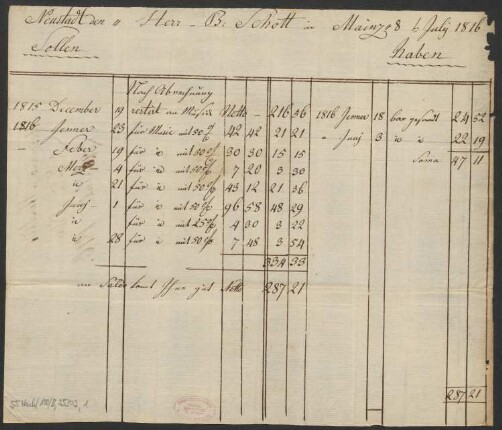 Neustadt den " Herr B: Schott in Mainz 8 t July 1816
Sollen Haben
Nach Abrechnung
1815 December 19 restirt an Musik Netto — 216 56 1816 Jenner 18 bar gesandt 24 52
1816 Jenner 23 für Music mit 50 % 42 42 21 21 " Junj 3 " " 22 19
" Feber 19 für " mit 50 % 30 30 15 15 Suma 47 11
" Merz 4 für " mit 50 % 7 20 3 30
" " 21 für " mit 50 % 43 12 21 36
" Junj 1 für " mit 50 % 96 58 48 29
" " für " mit 25 % 4 30 3 22
" " 28 für " mit 50 % 7 48 3 54
334 33
Saldo komt Ihnen gut Netto 287 21
287 21